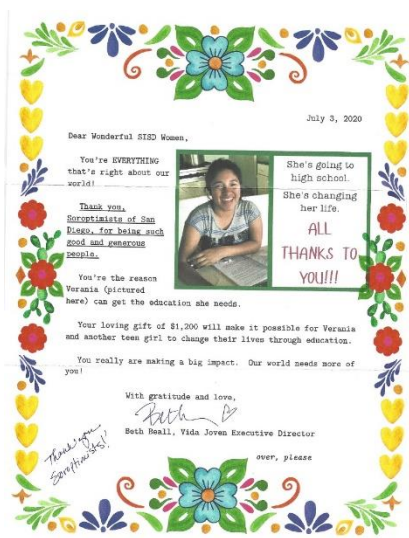 July 3, 2020
Dear Wonderful SISD Women,
You're EVERYTHING
that's right about our
world!
Thank you,
Soroptimists of San
Diego, for being such
good and generous
people.
She's going to
high school.
She's changing
her life.
ALL
THANKS TO
YOU!!!
You're the reason
Verania (pictured
here) can get the education she needs.
Your loving gift of $1,200 will make it possible for Verania
and another teen girl to change their lives through education.
You really are making a big impact. Our world needs more of
you!
With gratitude and love,
Beth
Beth Beall, Vida Joven Executive Director
Thank you
Soroptimists!
over, please